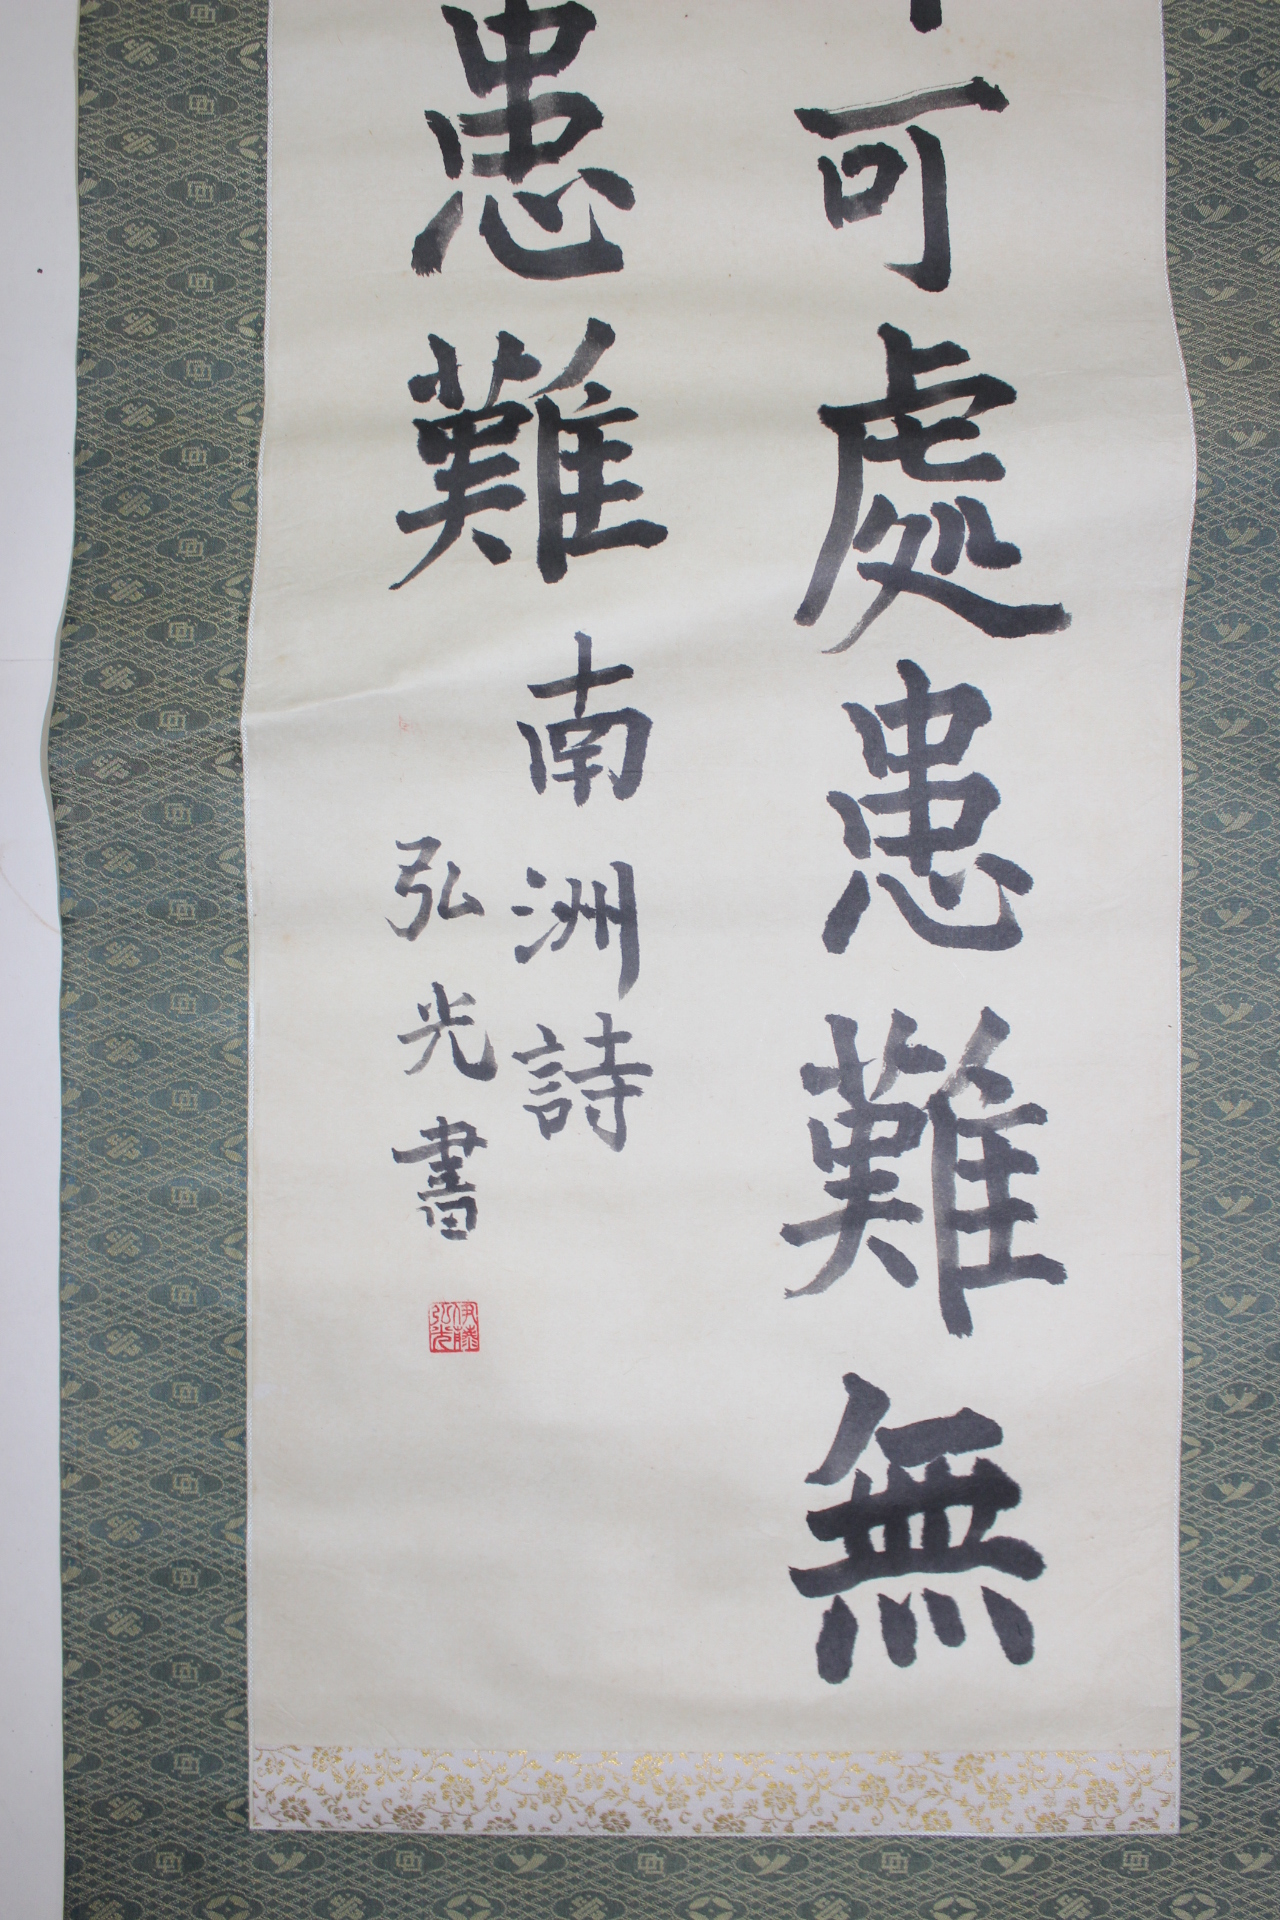 可處患難無
患難
南洲詩
弘光書
伊藤
弘光